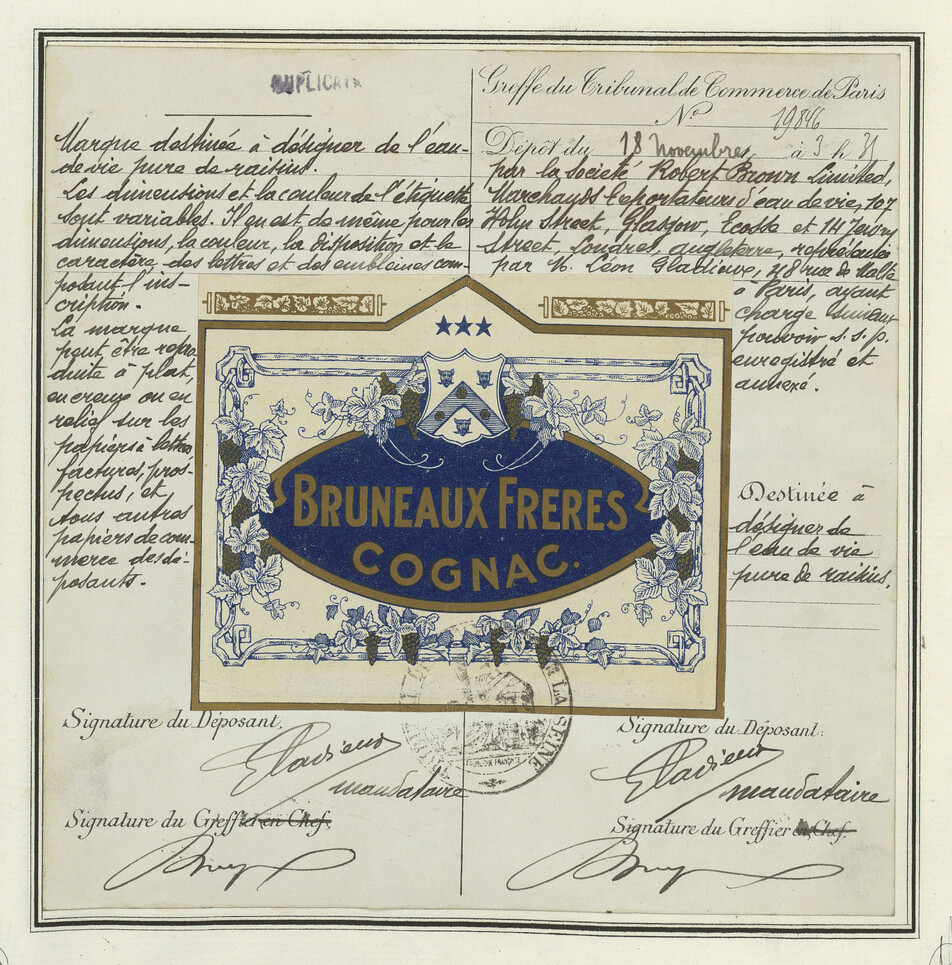 DUPLICATA
Marque destinée à désigner de l'eau-
de-vie pure de raisins.
Les dimensions et la couleur de l'étiquette
sont variables. Il en est de même pour les
dimensions, la couleur, la disposition et le
caractère des lettres et des emblèmes com-
posant l'ins-
cription.
La marque
peut être repro-
duite à plat,
en creux ou en
relief sur les
papiers à lettres
factures, pros-
pectus, et
tous autres
papiers de com-
merce des dé-
posants.
Greffe du Tribunal de Commerce de Paris
No 19846
Dépôt du 18 Novembre, à 3 h 31
par la société Robert Brown Limited,
Marchands & exportateurs d'eau de vie, 107
Holm Street, Glasgow, Ecosse et 14 Jewry
Street, Londres, Angleterre, représentée
par M. Léon Gladieux, 28 rue de Malte
à Paris, ayant
charge suivant
pouvoir s. s. p.
enregistré et
annexé.
Destinée à
désigner de
l'eau de vie
pure de raisins.
BRUNEAUX FRERES
COGNAC.
LA SEINE
Signature du Déposant,
Gladieux
mandataire
Signature du Greffier en Chef.
Signature du Déposant:
Gladieux
mandataire
Signature du Greffier en Chef.